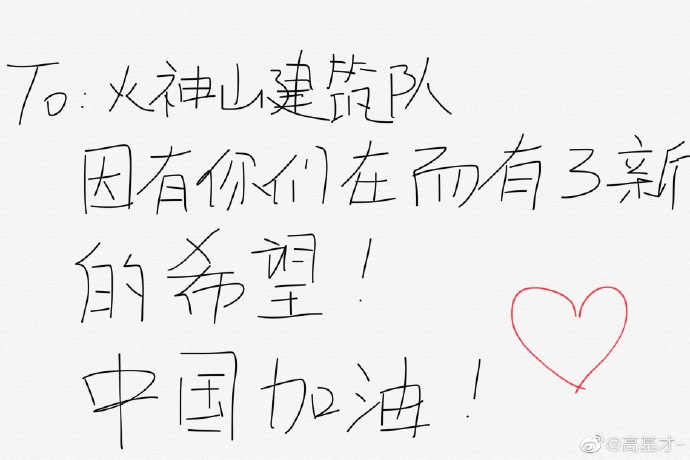 To:火神山建筑队
因有你们在而有了新
的希望！
中国加油！
@高基才-